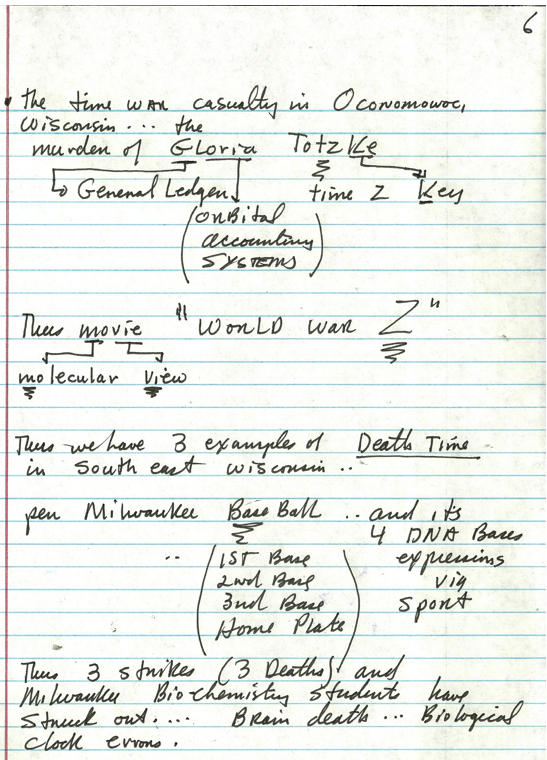 6
• the time war casualty in Oconomowoc,
wisconsin ... the
murder of Gloria Totzke
General Ledger time Z Key
(orbital
accounting
SYSTEMS)
Thus movie "World war Z"
molecular View
Thus we have 3 examples of Death Time
in South east wisconsin ..
per Milwaukee Base Ball .. and its
4 DNA Bases
.. (1ST Base expressions
2nd Base via
3rd Base sport
Home Plate)
Thus 3 strikes (3 Deaths) and
Milwaukee Bio-chemistry students have
struck out .... Brain death ... Biological
clock errors.